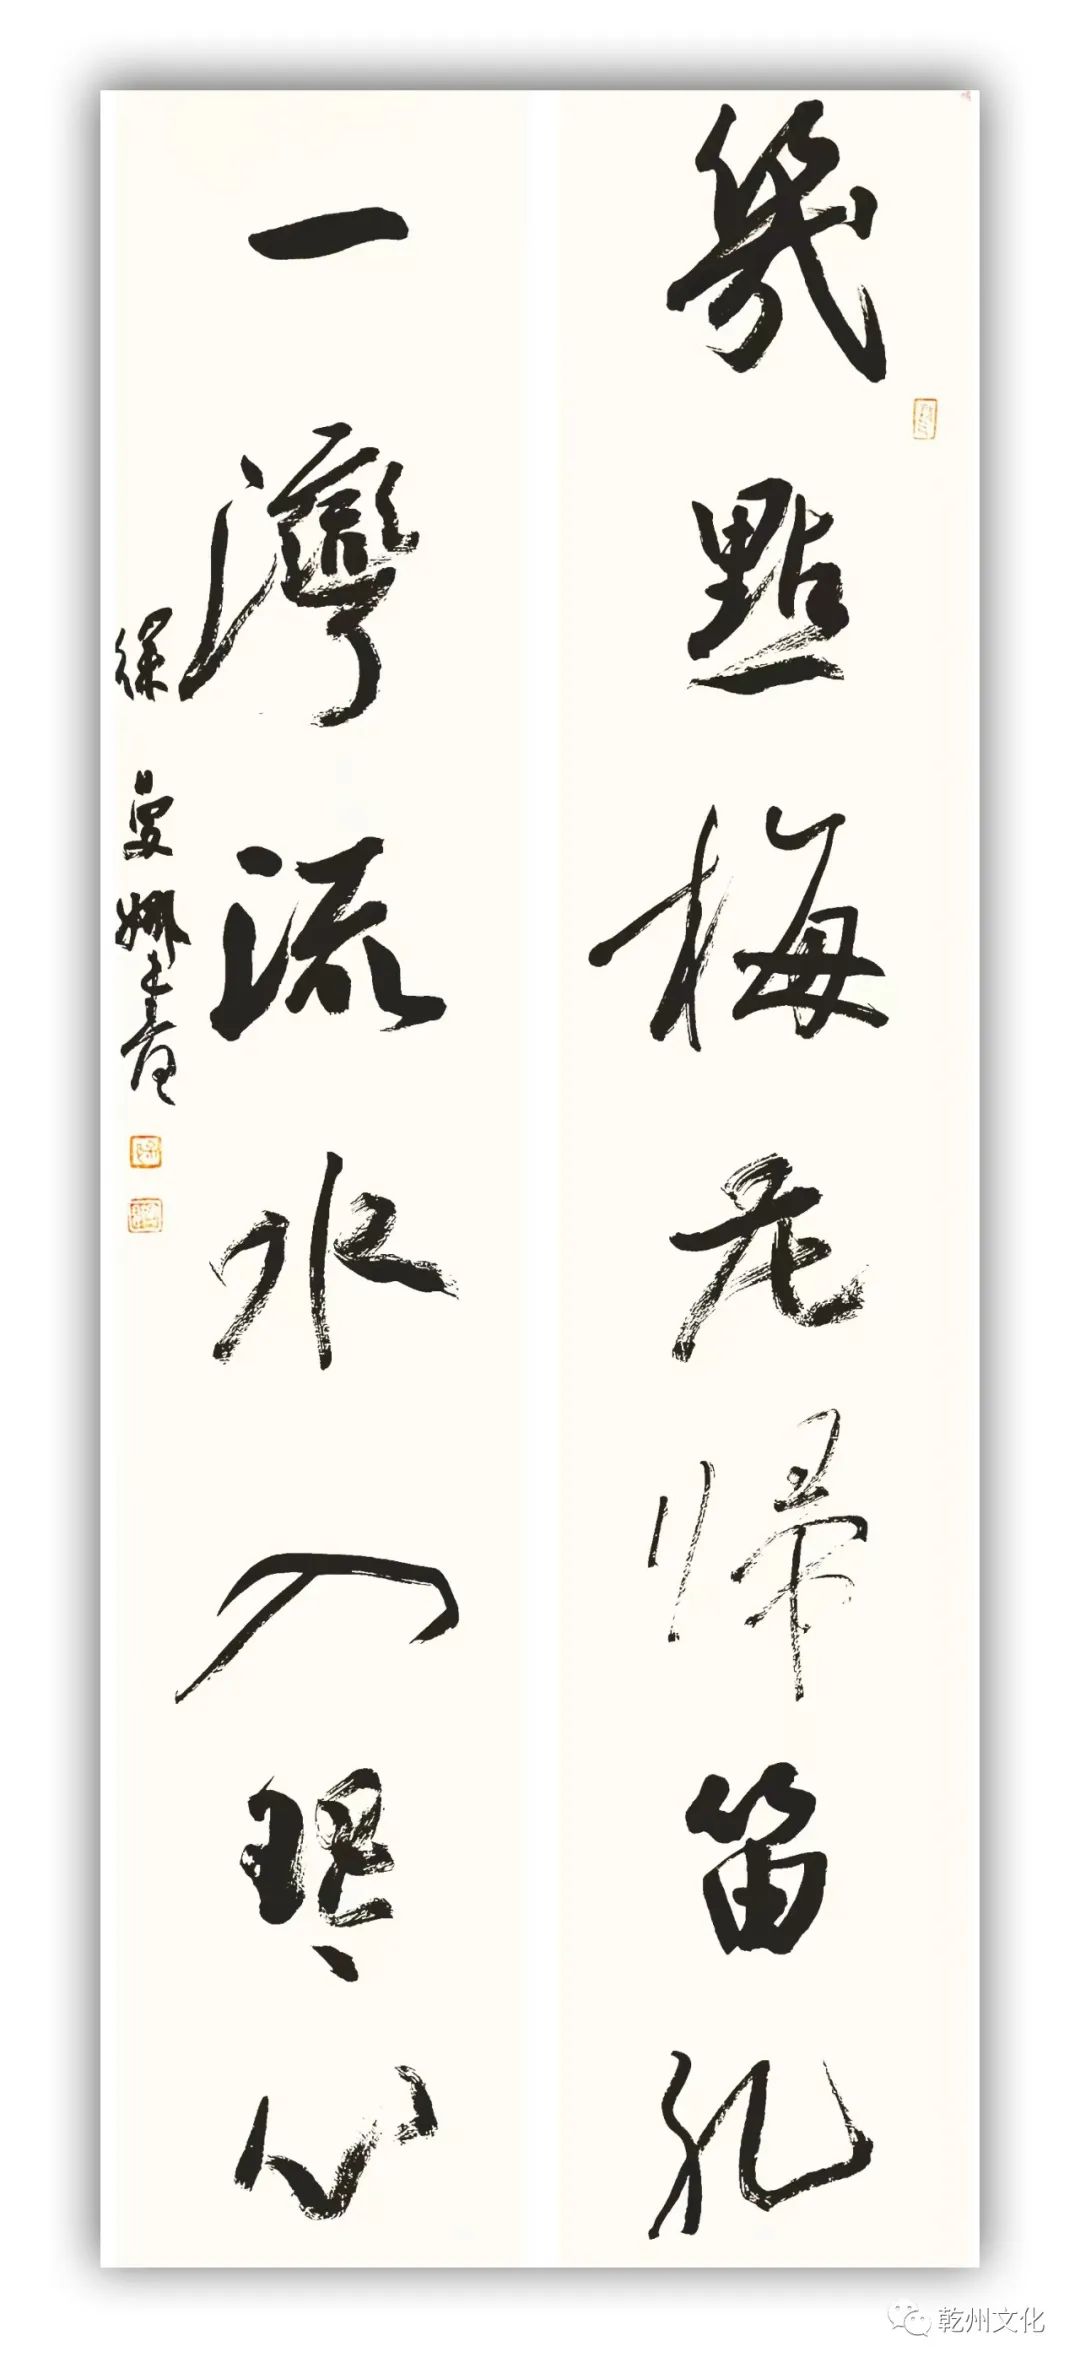 幾點梅花歸笛孔
一灣流水入琴心
徐曼娜書
乾州文化